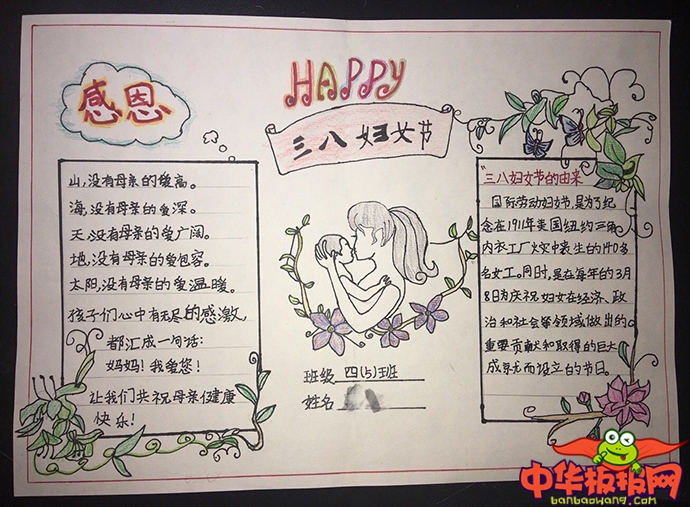 感恩
HAPPY
三八妇女节
山,没有母亲的爱高。
海,没有母亲的爱深。
天,没有母亲的爱广阔。
地,没有母亲的爱包容。
太阳,没有母亲的爱温暖。
孩子们心中有无尽的感激,
都汇成一句话:
妈妈!我爱您!
让我们共祝母亲健康
快乐!
班级 四(5)班
姓名
"三八妇女节的由来
国际劳动妇女节,是为了纪
念在1911年美国纽约三角
内衣工厂火灾中丧生的140多
名女工。同时,是在每年的3月
8日为庆祝妇女在经济、政
治和社会等领域做出的
重要贡献和取得的巨大
成就而设立的节日。
中华板报网
banbaowang.com